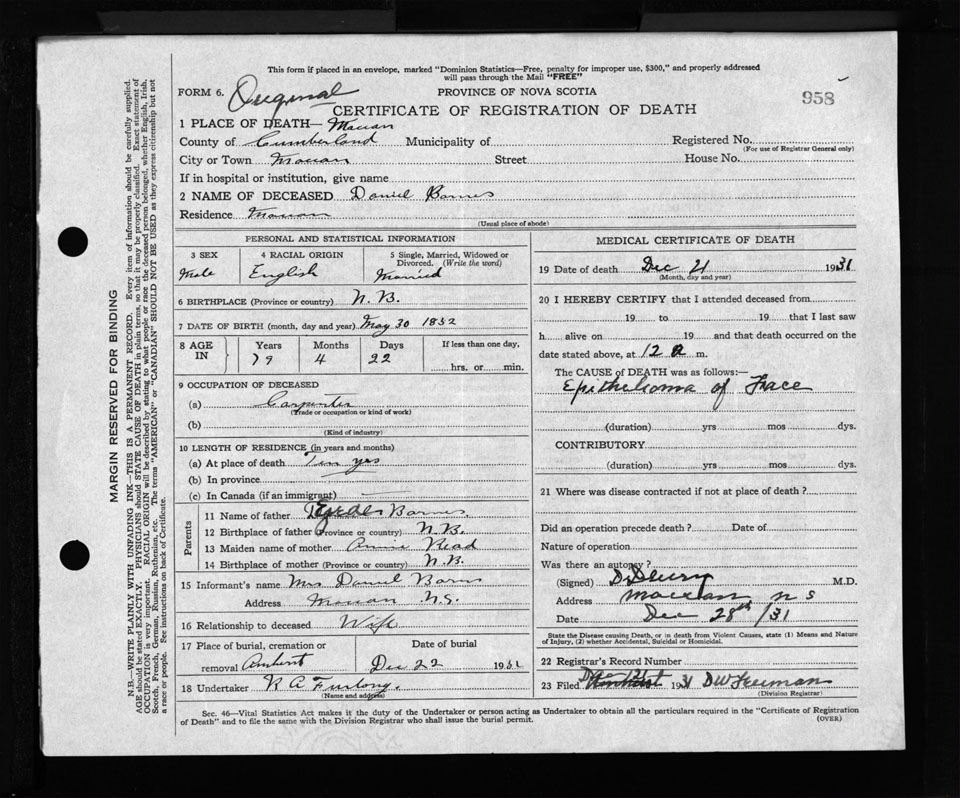 This form if placed in an envelope, marked "Dominion Statistics—Free, penalty for improper use, $300," and properly addressed
will pass through the Mail "FREE"
FORM 6. Original PROVINCE OF NOVA SCOTIA 958
CERTIFICATE OF REGISTRATION OF DEATH
1 PLACE OF DEATH— Maccan
County of Cumberland Municipality of Registered No.
(For use of Registrar General only)
City or Town Maccan Street House No.
If in hospital or institution, give name
2 NAME OF DECEASED Daniel Barnes
Residence Maccan
(Usual place of abode)
PERSONAL AND STATISTICAL INFORMATION
3 SEX 4 RACIAL ORIGIN 5 Single, Married, Widowed or
Divorced. (Write the word)
Male English Married
6 BIRTHPLACE (Province or country) N.B.
7 DATE OF BIRTH (month, day and year) May 30 1852
8 AGE IN Years Months Days If less than one day,
79 4 22 hrs. or min.
9 OCCUPATION OF DECEASED
(a) Carpenter
(Trade or occupation or kind of work)
(b)
(Kind of industry)
10 LENGTH OF RESIDENCE (in years and months)
(a) At place of death Ten yrs
(b) In province
(c) In Canada (if an immigrant)
Parents
11 Name of father Barnes
12 Birthplace of father (Province or country) N.B.
13 Maiden name of mother Annie Read
14 Birthplace of mother (Province or country) N.B.
15 Informant's name Mrs Daniel Barnes
Address Maccan N.S.
16 Relationship to deceased Wife
17 Place of burial, cremation or Date of burial
removal Amherst Dec 22 1931
18 Undertaker R A Furlong.
(Name and address)
MEDICAL CERTIFICATE OF DEATH
19 Date of death Dec 21 1931
(Month, day and year)
20 I HEREBY CERTIFY that I attended deceased from
19 to 19 that I last saw
h alive on 19 and that death occurred on the
date stated above, at 12 a m.
The CAUSE of DEATH was as follows:—
Epithelioma of Face
(duration) yrs mos dys.
CONTRIBUTORY
(duration) yrs mos dys.
21 Where was disease contracted if not at place of death?
Did an operation precede death? Date of
Nature of operation
Was there an autopsy?
(Signed) M.D.
Address Maccan, N S
Date Dec 28th /31
State the Disease causing Death, or in death from Violent Causes, state (1) Means and Nature
of Injury, (2) whether Accidental, Suicidal or Homicidal.
22 Registrar's Record Number
23 Filed 1931 D W Freeman
(Division Registrar)
Sec. 46—Vital Statistics Act makes it the duty of the Undertaker or person acting as Undertaker to obtain all the particulars required in the "Certificate of Registration
of Death" and to file the same with the Division Registrar who shall issue the burial permit.
(OVER)
MARGIN RESERVED FOR BINDING
N.B.—WRITE PLAINLY WITH UNFADING INK—THIS IS A PERMANENT RECORD. Every item of information should be carefully supplied.
AGE should be stated EXACTLY. PHYSICIANS should STATE CAUSE OF DEATH in plain terms, so that it may be properly classified. Exact statement of
OCCUPATION is very important. RACIAL ORIGIN will be described by stating to what people or race the deceased person belonged, whether English, Irish,
Scotch, French, German, Russian, Ruthenian, etc. The terms "AMERICAN" or "CANADIAN" SHOULD NOT BE USED as they express citizenship but not
a race or people. See instructions on back of Certificate.